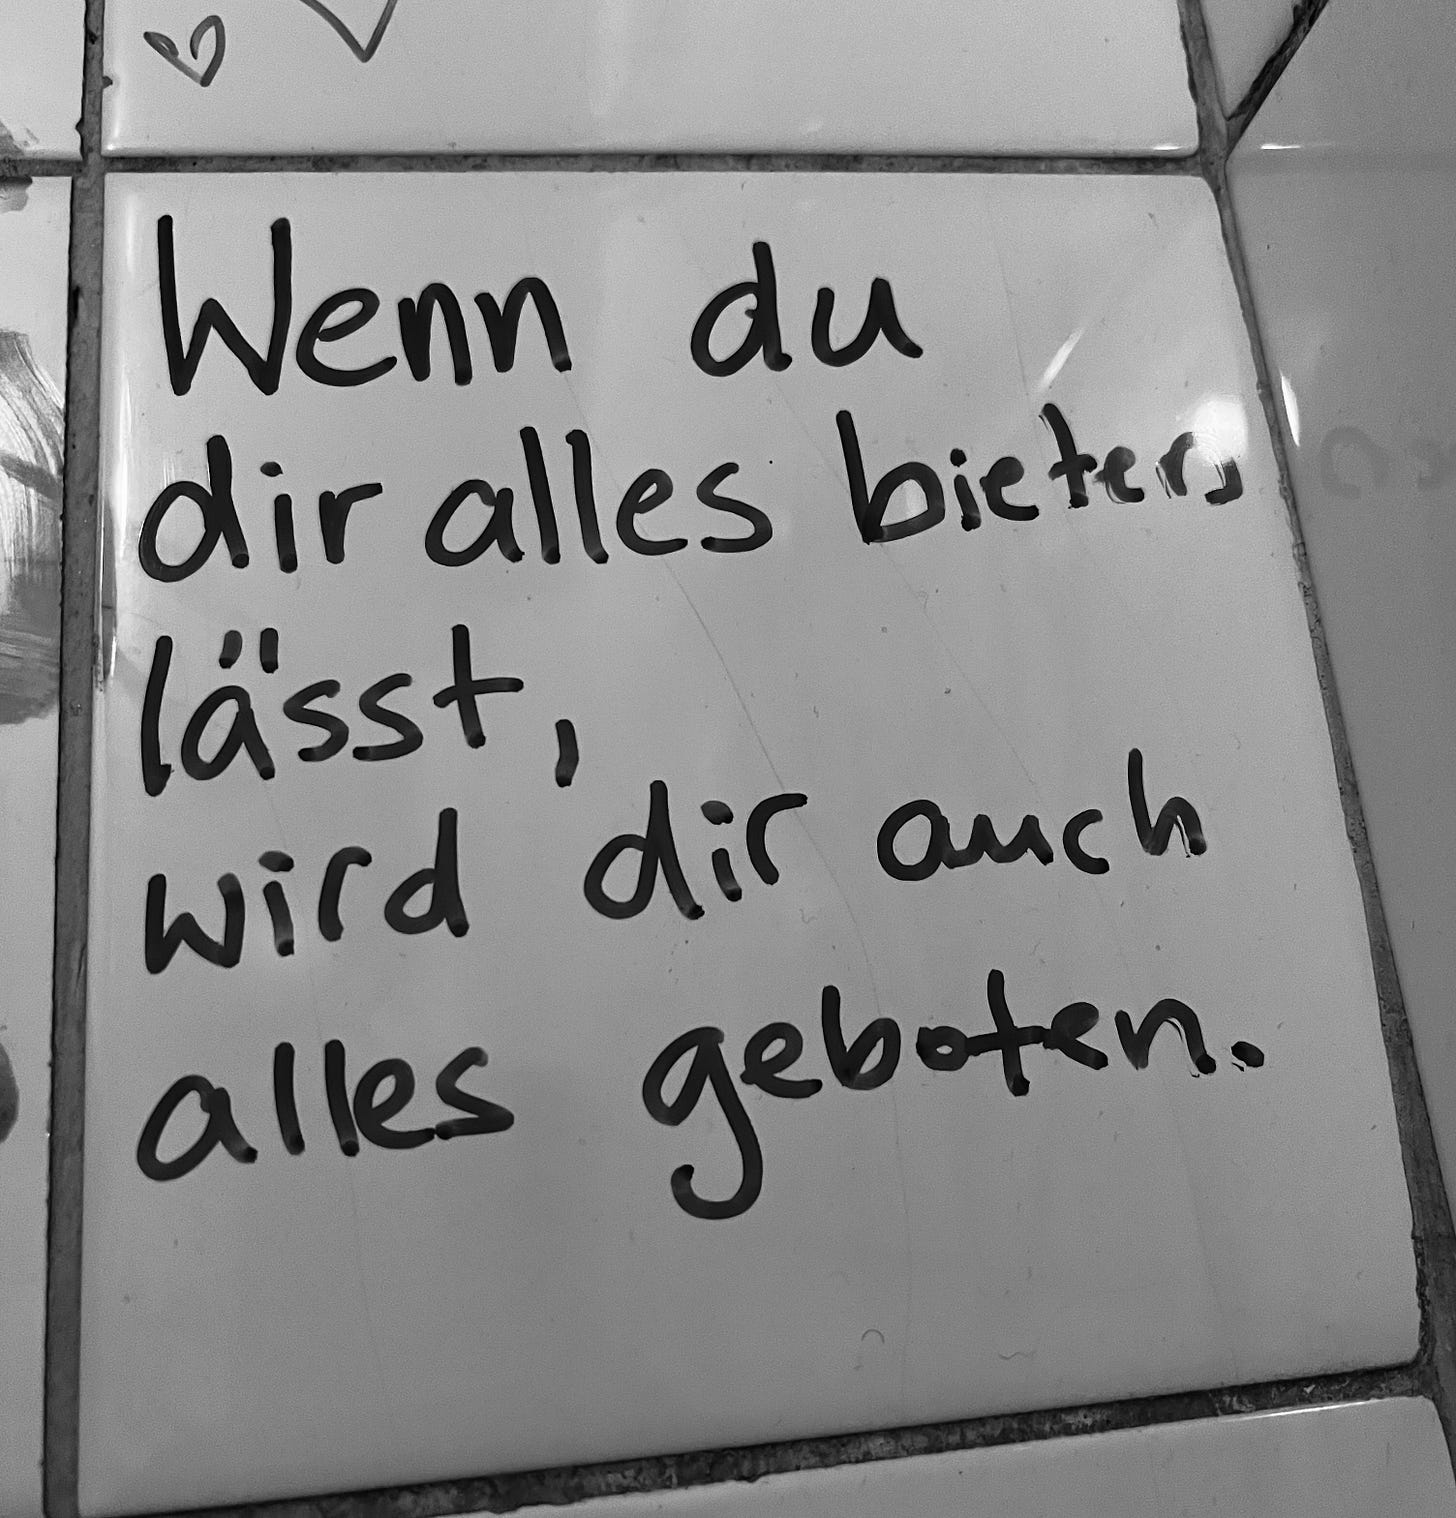 Wenn du
dir alles bieten
lässt,
wird dir auch
alles geboten.